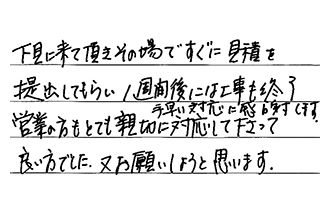 下見に来て頂きその場ですぐに見積を
提出してもらい1週間後には工事も終了
手早い対応に感謝します。
営業の方もとても親切に対応して下さって
良い方でした。又お願いしようと思います。